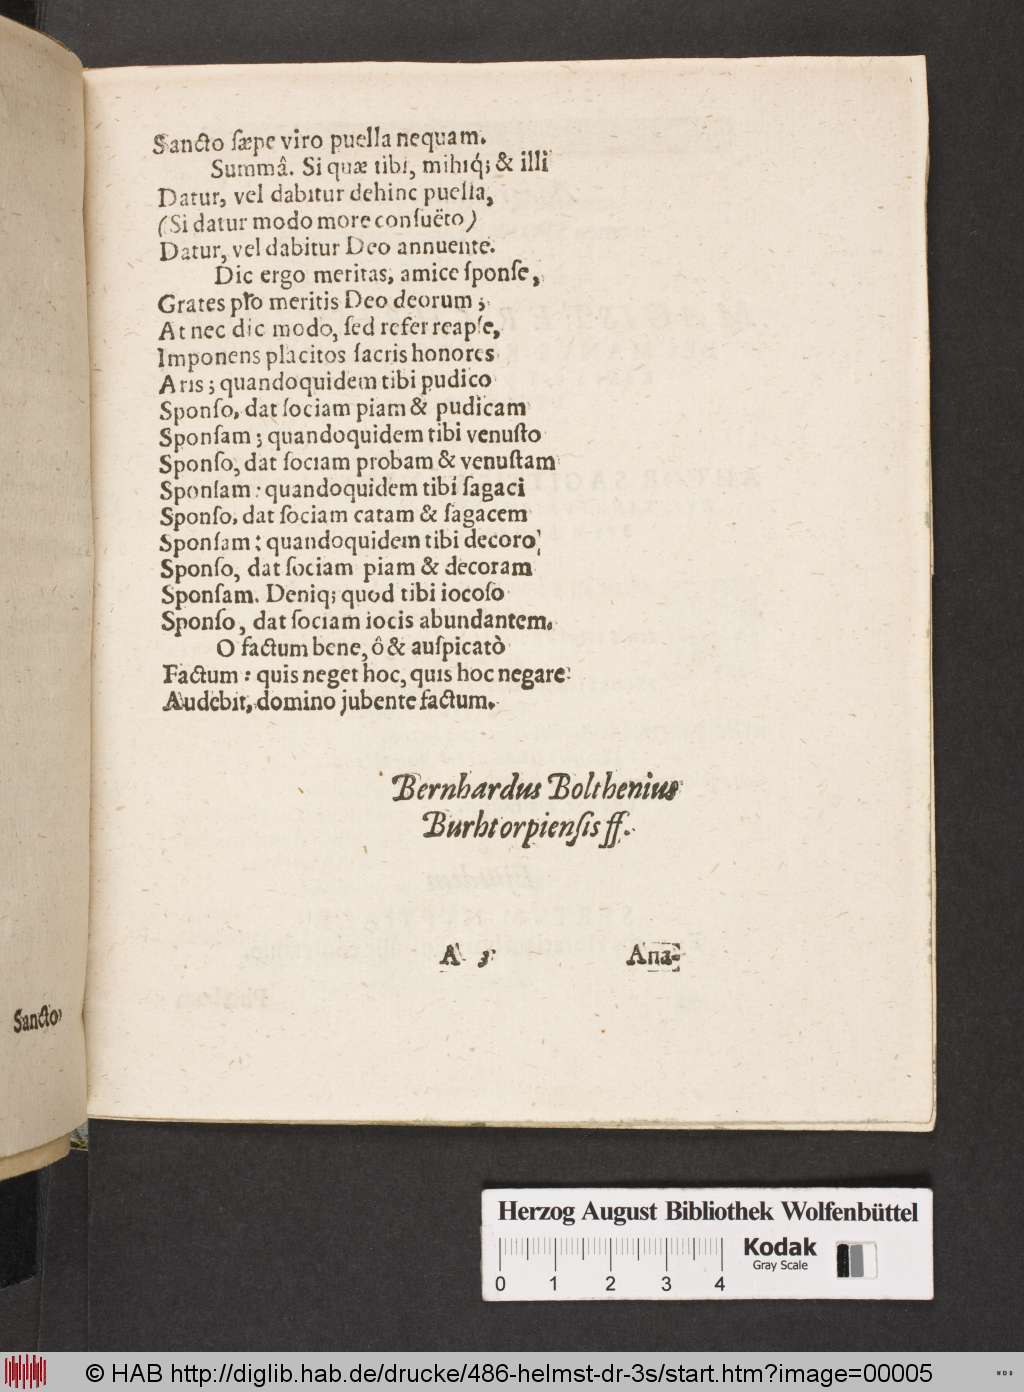 Sancto sæpe viro puella nequam.
Summâ. Si quæ tibi, mihiq́; & illi
Datur, vel dabitur dehinc puella,
(Si datur modo more consuëto)
Datur, vel dabitur Deo annuente.
Dic ergo meritas, amice sponse,
Grates pro meritis Deo deorum;
At nec dic modo, sed refer reapse,
Imponens placitos sacris honores
Aris; quandoquidem tibi pudico
Sponso, dat sociam piam & pudicam
Sponsam; quandoquidem tibi venusto
Sponso, dat sociam probam & venustam
Sponsam: quandoquidem tibi sagaci
Sponso, dat sociam catam & sagacem
Sponsam: quandoquidem tibi decoro
Sponso, dat sociam piam & decoram
Sponsam. Deniq; quod tibi iocoso
Sponso, dat sociam iocis abundantem.
O factum bene, ô & auspicatò
Factum: quis neget hoc, quis hoc negare
Audebit, domino jubente factum.
Bernhardus Bolthenius
Burhtorpiensis ff.
A 3 Ana-
Sancto
Herzog August Bibliothek Wolfenbüttel
Kodak
Gray Scale
0 1 2 3 4
© HAB http://diglib.hab.de/drucke/486-helmst-dr-3s/start.htm?image=00005